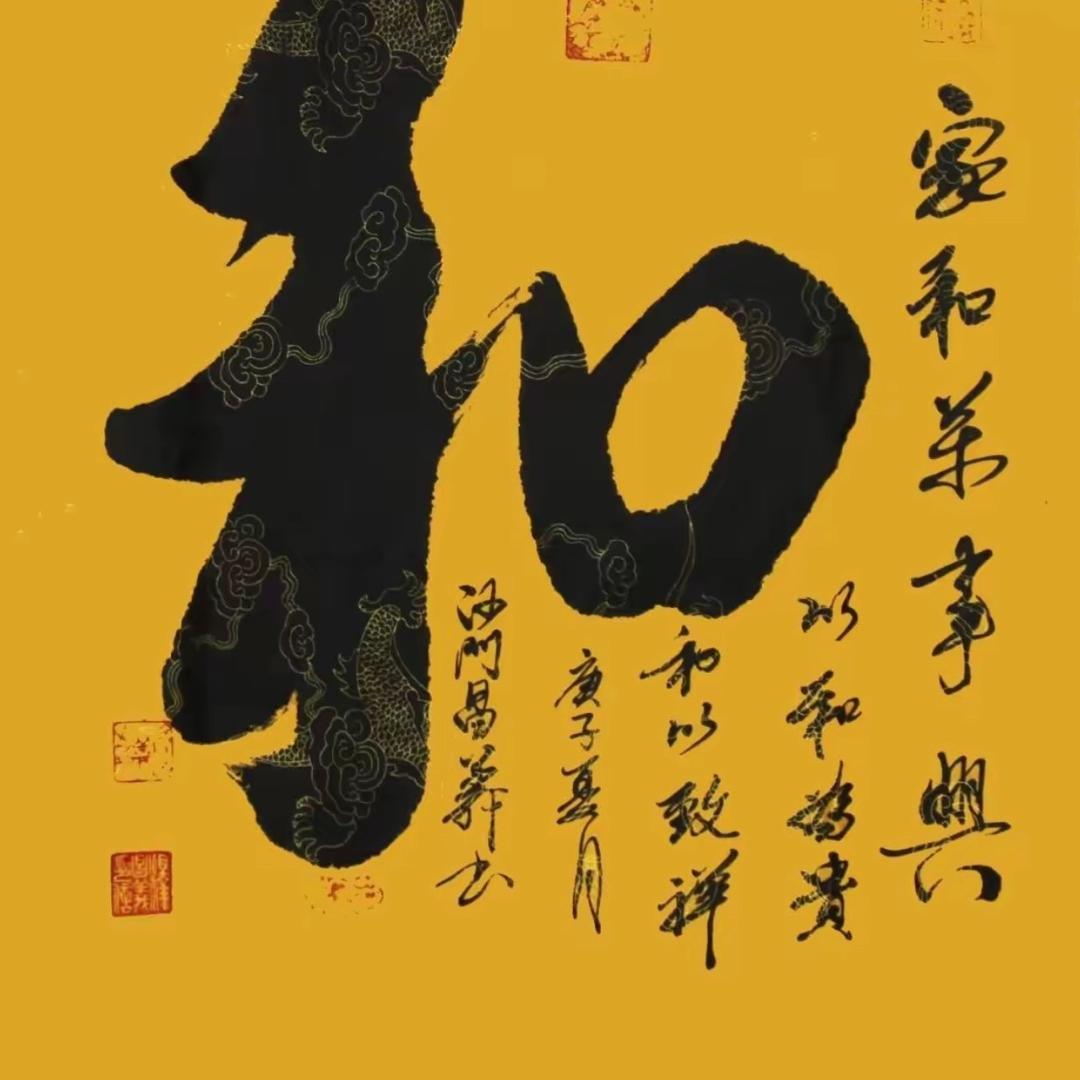 和
家和萬事興
以和為貴
和以致祥
庚子夏月
沙門昌莽书